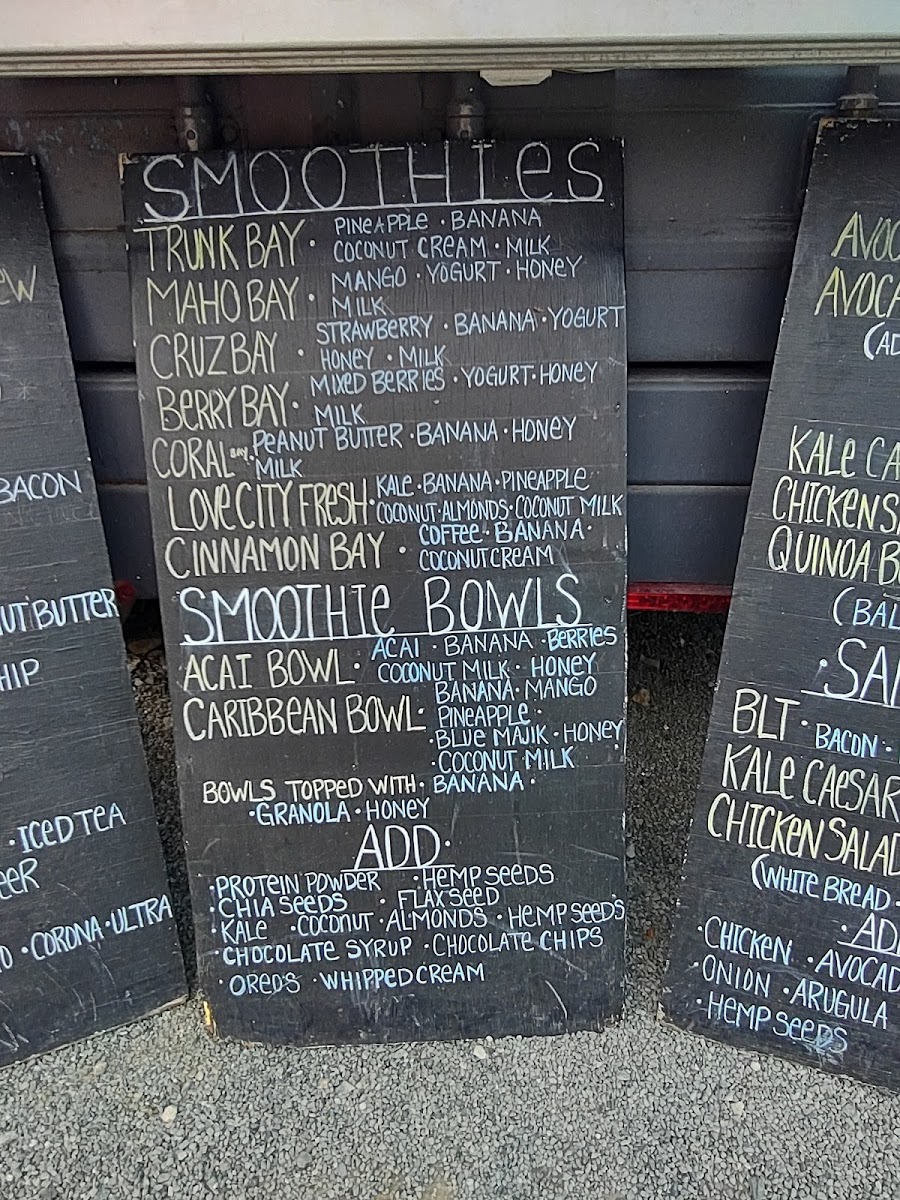 SMOOTHIES
TRUNK BAY · PINEAPPLE · BANANA
COCONUT CREAM · MILK
MAHO BAY · MANGO · YOGURT · HONEY
MILK
CRUZ BAY · STRAWBERRY · BANANA · YOGURT
HONEY · MILK
BERRY BAY · MIXED BERRIES · YOGURT · HONEY
MILK
CORAL BAY · PEANUT BUTTER · BANANA · HONEY
· MILK
LOVE CITY FRESH · KALE · BANANA · PINEAPPLE
COCONUT · ALMONDS · COCONUT MILK
CINNAMON BAY · COFFEE · BANANA ·
COCONUT CREAM
SMOOTHIE BOWLS
ACAI BOWL · ACAI · BANANA · BERRIES
COCONUT MILK · HONEY
CARIBBEAN BOWL · BANANA · MANGO
PINEAPPLE ·
· BLUE MAJIK · HONEY
· COCONUT MILK
BOWLS TOPPED WITH · BANANA ·
· GRANOLA · HONEY
ADD ·
· PROTEIN POWDER · HEMP SEEDS
· CHIA SEEDS · FLAXSEED
· KALE · COCONUT · ALMONDS · HEMP SEEDS
· CHOCOLATE SYRUP · CHOCOLATE CHIPS
· OREO'S · WHIPPED CREAM
EW
BACON
UT BUTTER
HIP
· ICED TEA
EER
O · CORONA · ULTRA
AVOC
AVOCA
(AD
KALE CA
CHICKEN S
QUINOA B
(BAL
· SAN
BLT · BACON ·
KALE CAESAR
CHICKEN SALAD
(WHITE BREAD ·
· ADD
· CHICKEN · AVOCAD
· ONION · ARUGULA
· HEMP SEEDS